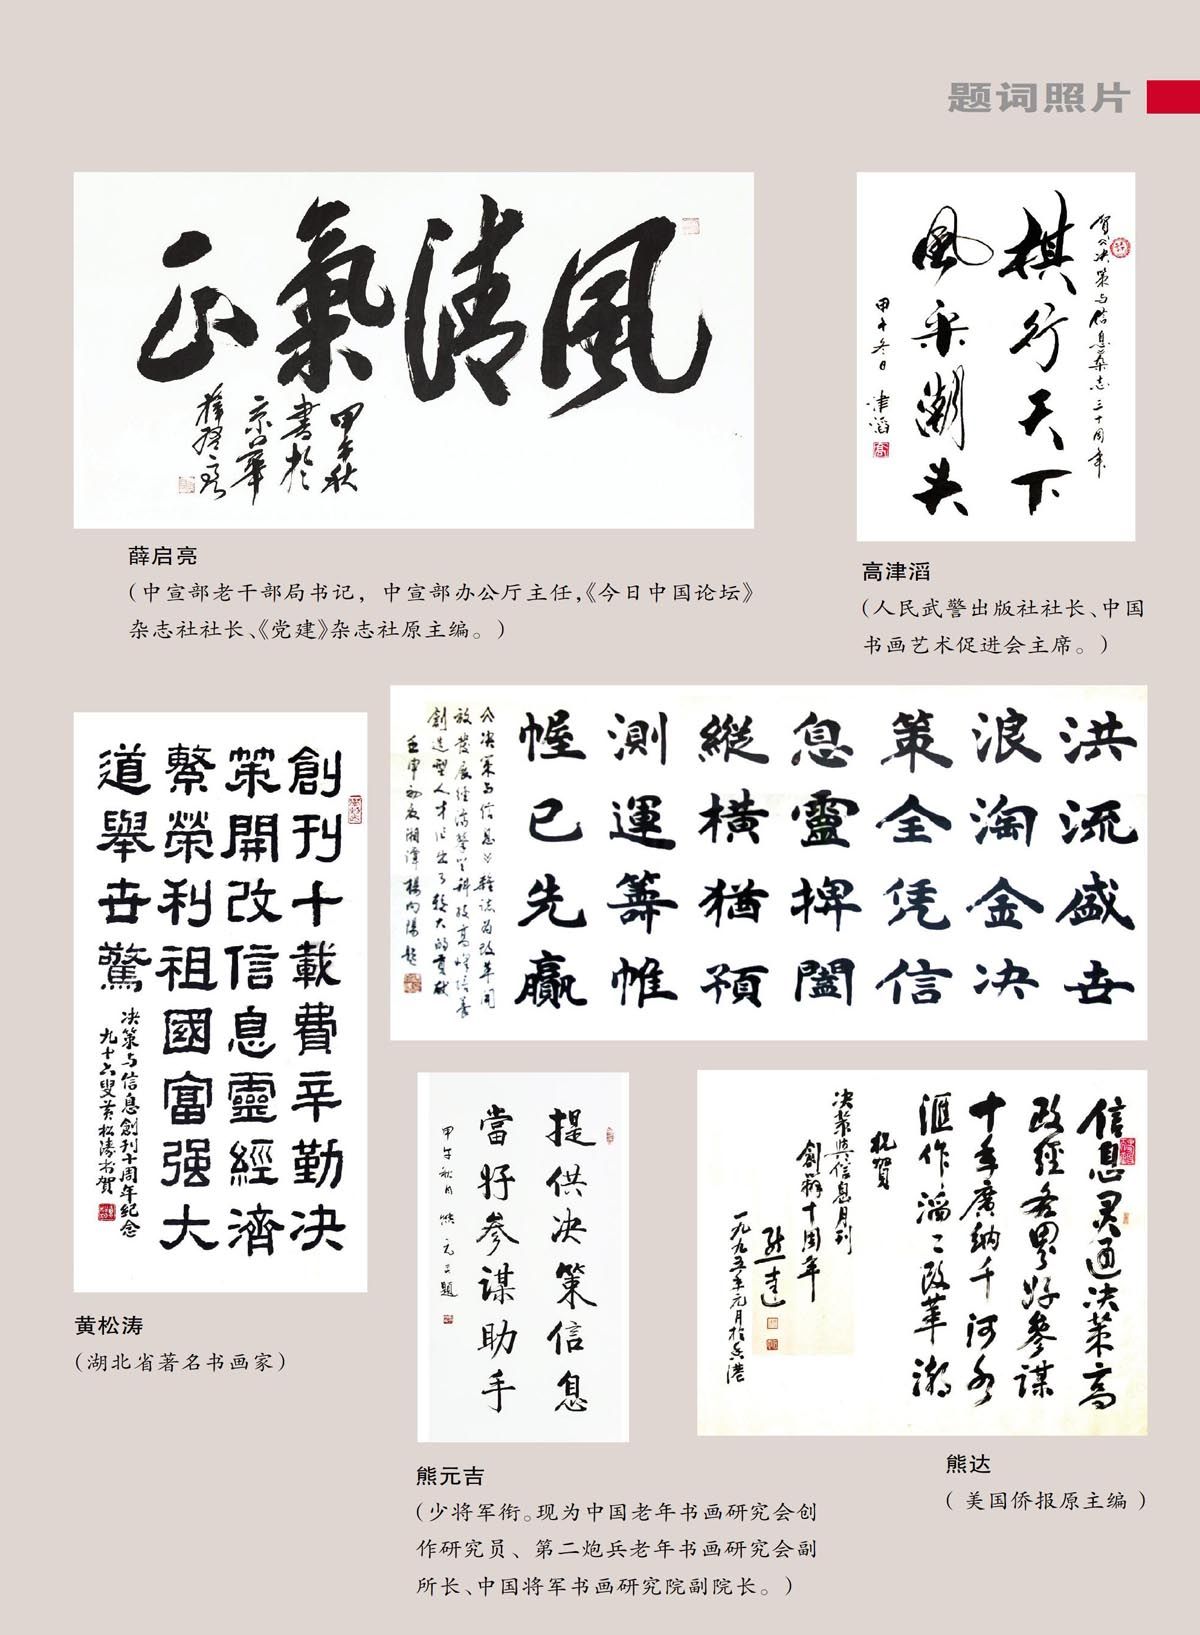 题词照片
風清氣正
甲午秋
書於
京華
薛启亮
薛启亮
(中宣部老干部局书记，中宣部办公厅主任，《今日中国论坛》
杂志社社长、《党建》杂志社原主编。)
贺《决策与信息》杂志三十周年
棋行天下
風采潮头
甲午冬日 津滔
高津滔
(人民武警出版社社长、中国
书画艺术促进会主席。)
創刊十載費辛勤决
策開改信息靈經濟
繁榮利祖國富强大
道舉世驚
决策与信息創刊十周年纪念
九十六叟黄松涛书贺
黄松涛
(湖北省著名书画家)
洪流盛世
浪淘金决
策全凭信
息靈捭闔
縱橫猶預
測運籌帷
幄已先贏
《决策与信息》雜誌为改革開
放發展经济攀登科技高峰培養
創造型人才作出了較大的贡献
壬申初夏湘潭楊向陽題
提供决策信息
當好参謀助手
甲午秋月 熊元吉題
熊元吉
(少将军衔。现为中国老年书画研究会创
作研究员、第二炮兵老年书画研究会副
所长、中国将军书画研究院副院长。)
信息灵通决策高
政經各界好參謀
十年廣納千河水
滙作滔滔改革潮
祝賀
决策與信息月刊
創辦十周年
熊達
一九九五年元月於香港
熊达
(美国侨报原主编)